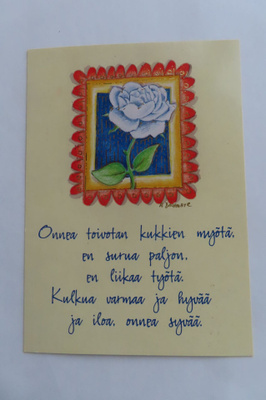 Onnea toivotan kukkien myötä,
en surua paljon,
en liikaa työtä.
Kulkua varmaa ja hyvää
ja iloa, onnea syvää.